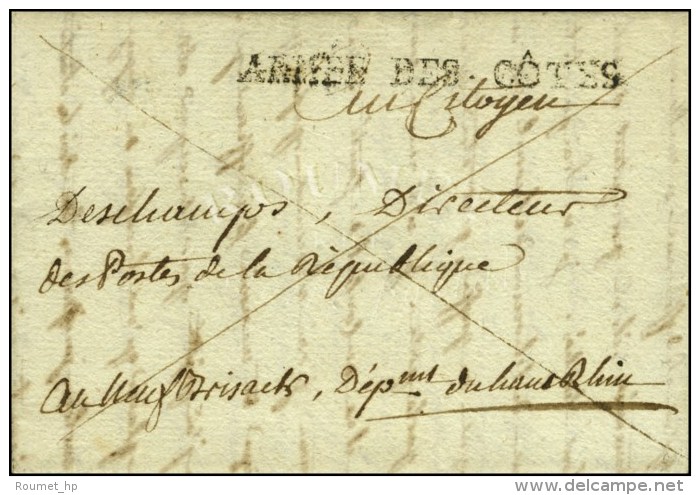 ARMÉE DES CÔTES
Au Citoyen
Deschamps, Directeur
des Postes de la République
au Neuf Brisack, Dépmt du haut Rhin
Roumet_hp
delcampe.net